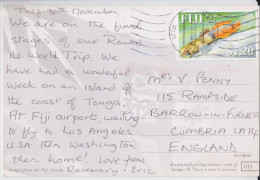 Tues 30th November
We are on the final
stages of our Round
the World Trip. We
have had a wonderful
week on an island off
the coast of Tonga.
At Fiji airport, waiting
to fly to Los Angeles
U.S.A. then Washington
then home! Love from
Rosemary + Eric
FIJI
$1.20
MRS V. PENNY
115 RAMPSIDE
BARROW-IN-FURNESS
CUMBRIA LA14
ENGLAND